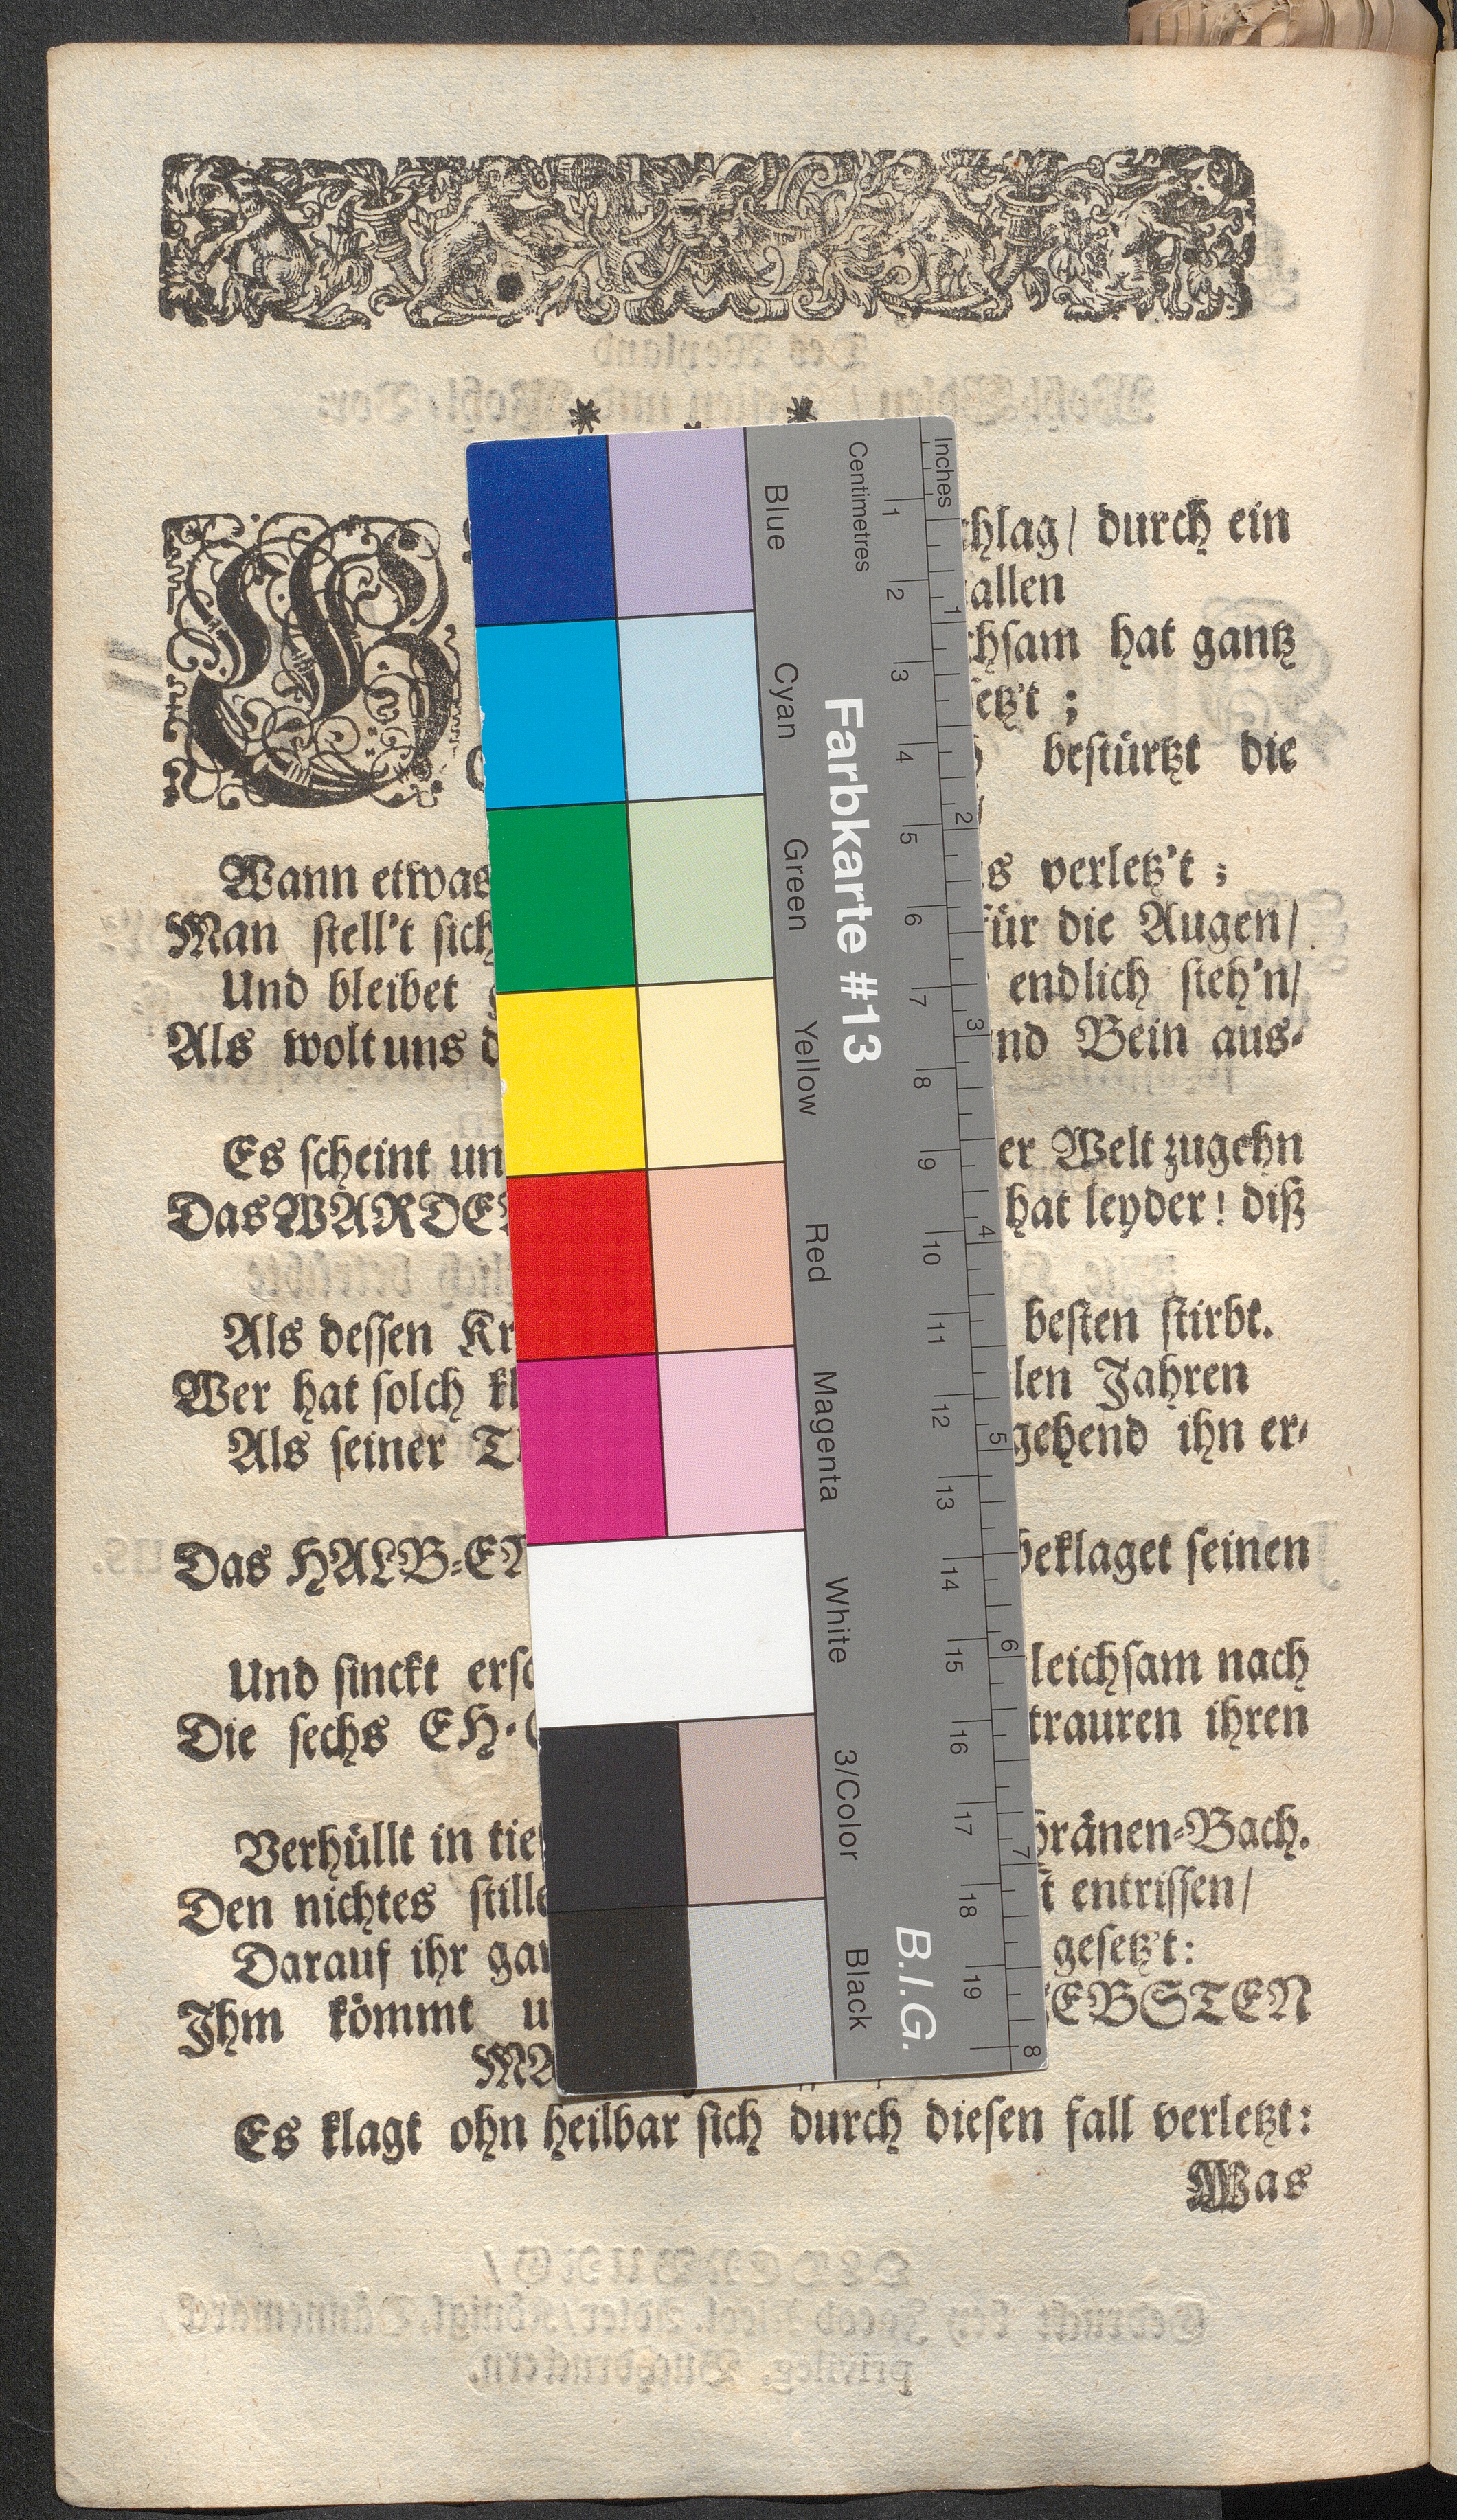 * *
chlag/ durch ein
allen
chsam hat gantz
etz't ;
bestürtzt die
Wann etwas s verletz't ;
Man stell't sich für die Augen/
Und bleibet endlich steh'n/
Als wolt uns d nd Bein aus-
Es scheint un er Welt zugehn
Das WARDE hat leyder! diß
Als dessen Kr besten stirbt.
Wer hat solch kl len Jahren
Als seiner T gehend ihn er-
Das HALB-EN beklaget seinen
Und sinckt ersc leichsam nach
Die sechs EH- trauren ihren
Verhüllt in tief hränen-Bach.
Den nichtes stille t entrissen/
Darauf ihr gan gesetz't:
Ihm kömmt u EBSTEN
Es klagt ohn heilbar sich durch diesen fall verletzt:
Was
Farbkarte #13
B.I.G.
Blue
Cyan
Green
Yellow
Red
Magenta
White
3/Color
Black
Centimetres
1 2 3 4 5 6 7 8 9 10 11 12 13 14 15 16 17 18 19
Inches
1 2 3 4 5 6 7 8